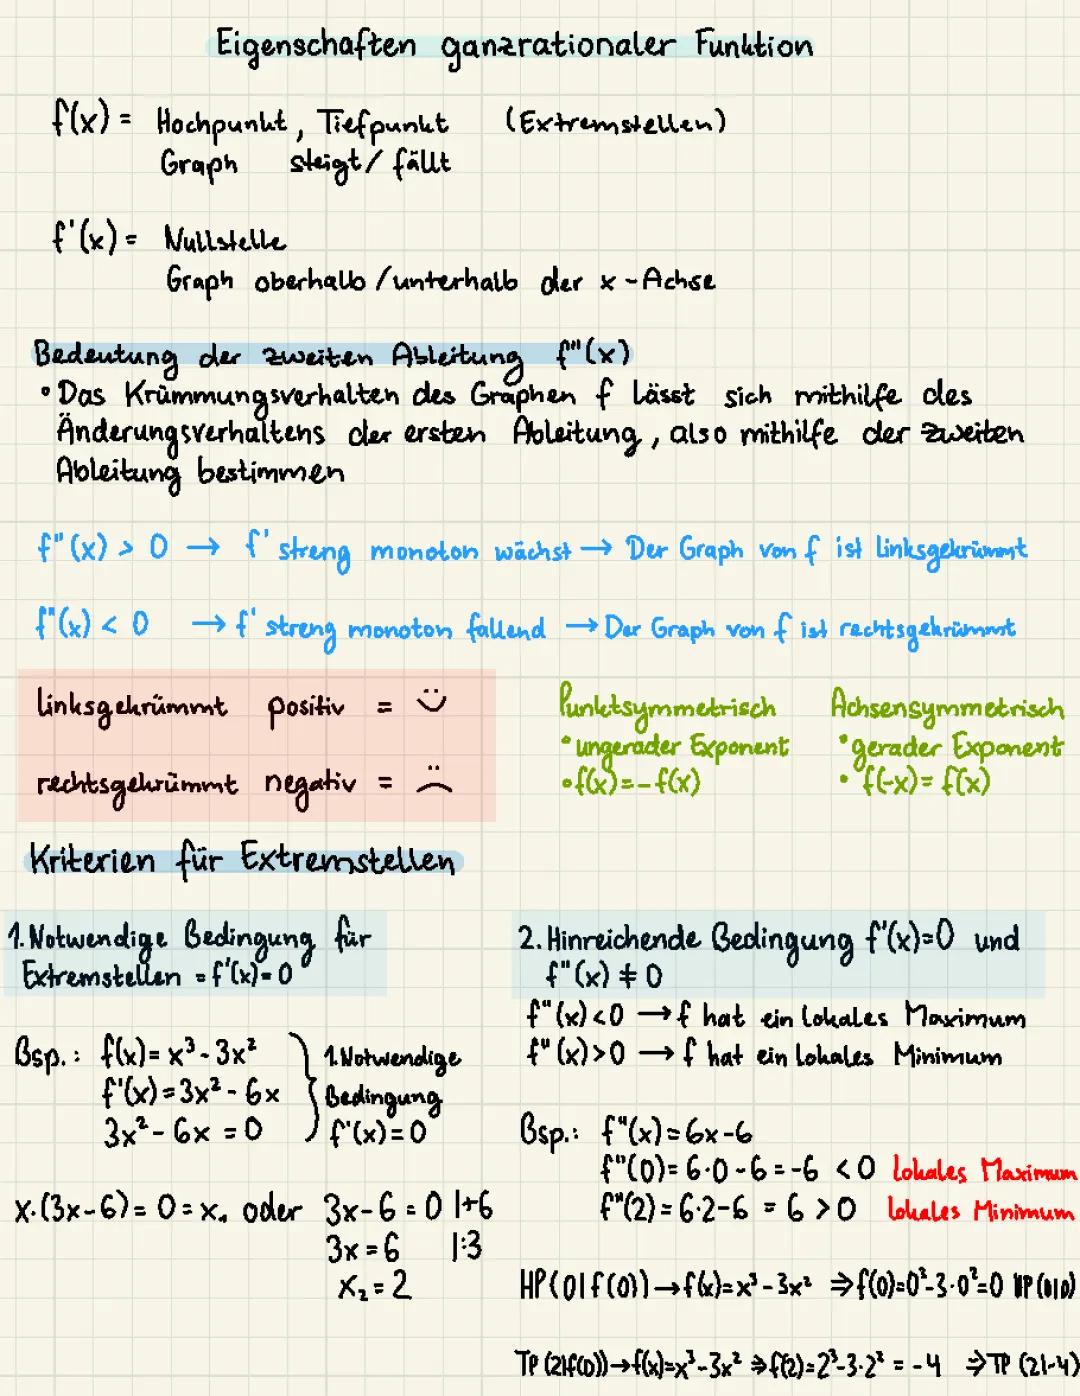 Eigenschaften ganzrationaler Funktion
f(x) = Hochpunkt, Tiefpunkt (Extremstellen)
Graph steigt/fällt
f'(x) = Nullstelle
Graph oberhalb/unterhalb der x-Achse
Bedeutung der zweiten Ableitung f"(x)
• Das Krümmungsverhalten des Graphen f lässt sich mithilfe des
Änderungsverhaltens der ersten Ableitung, also mithilfe der zweiten
Ableitung bestimmen
f"(x) > 0 → f' streng monoton wächst → Der Graph von f ist linksgekrümmt
f"(x) < 0 → f' streng monoton fallend → Der Graph von f ist rechtsgekrümmt
linksgekrümmt positiv = ☺
rechtsgekrümmt negativ = ☹
Punktsymmetrisch
• ungerader Exponent
• f(x) = -f(x)
Achsensymmetrisch
• gerader Exponent
• f(-x) = f(x)
Kriterien für Extremstellen
1. Notwendige Bedingung für
Extremstellen = f'(x) = 0
Bsp.: f(x) = x³ - 3x²
f'(x) = 3x² - 6x
3x² - 6x = 0
1. Notwendige
Bedingung
f'(x) = 0
x·(3x-6) = 0 = x₁ oder 3x-6 = 0 |+6
3x = 6 |:3
x₂ = 2
2. Hinreichende Bedingung f'(x)=0 und
f"(x) ≠ 0
f"(x) < 0 → f hat ein lokales Maximum
f"(x) > 0 → f hat ein lokales Minimum
Bsp.: f"(x) = 6x-6
f"(0) = 6·0-6 = -6 < 0 lokales Maximum
f"(2) = 6·2-6 = 6 > 0 lokales Minimum
HP(0|f(0)) → f(x)=x³-3x² ⇒ f(0)=0³-3·0²=0 HP(0|0)
TP(2|f(0)) → f(x)=x³-3x² ⇒ f(2)=2³-3·2² = -4 ⇒ TP(2|-4)